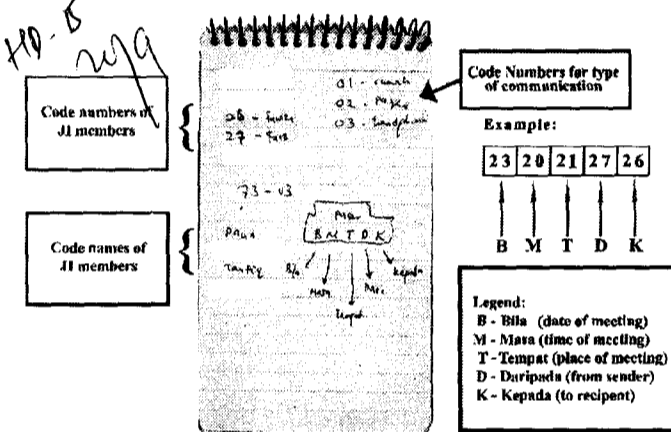 HD. B
Code numbers of
JI members
Code names of
JI members
01 -
02 -
03 -
27 -
73 - 03
B M T D K
Kepada
Code Numbers for type
of communication
Example:
23 20 21 27 26
B M T D K
Legend:
B - Bila (date of meeting)
M - Masa (time of meeting)
T - Tempat (place of meeting)
D - Daripada (from sender)
K - Kepada (to recipent)